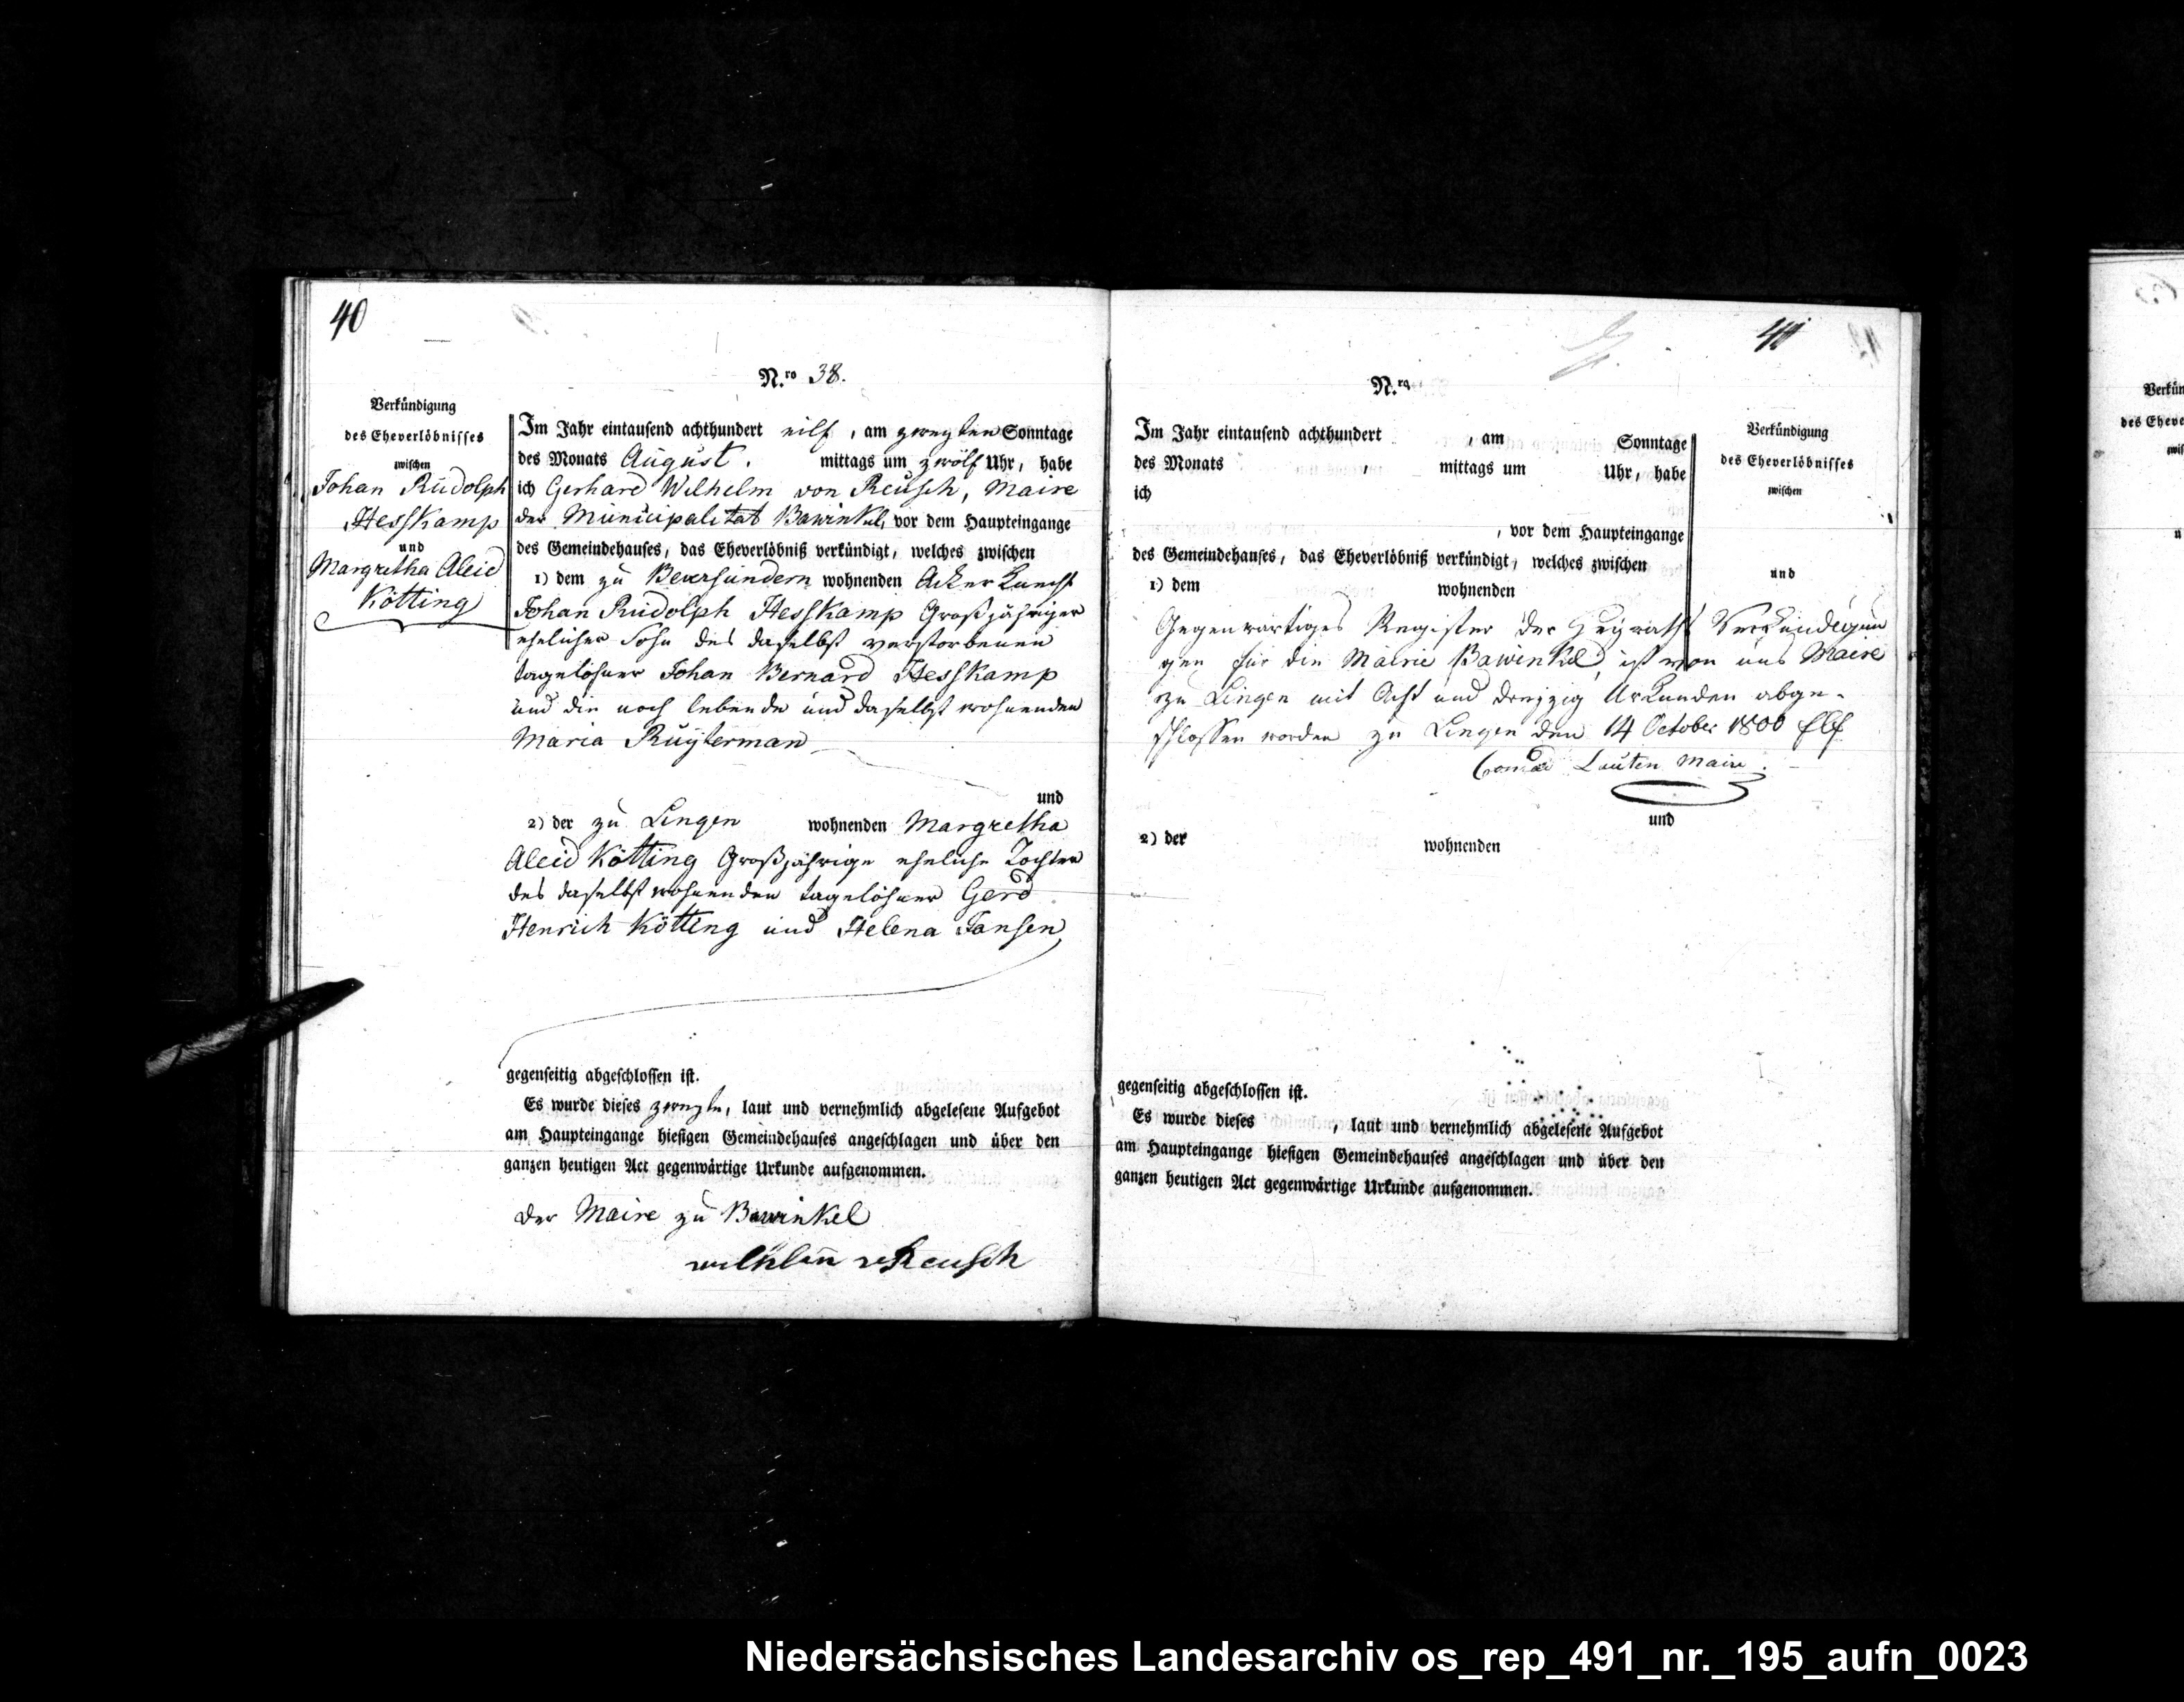 40
N.ro 38.
Verkündigung
des Eheverlöbnisses
zwischen
Johan Rudolph
Hesskamp
und
Margretha Aleid
Kötting
Im Jahr eintausend achthundert eilf, am zweyten Sonntage
des Monats August. mittags um zwölf Uhr, habe
ich Gerhard Wilhelm von Reusch, Maire
der Municipalitat Bawinkel, vor dem Haupteingange
des Gemeindehauses, das Eheverlöbniß verkündigt, welches zwischen
1) dem zu Beversundern wohnenden Ackerknecht
Johan Rudolph Hesskamp Großjähriger
ehelicher Sohn des daselbst verstorbenen
tagelöhner Johan Bernard Hesskamp
und die noch lebende und daselbst wohnenden
Maria Ruÿterman
und
2) der zu Lingen wohnenden Margretha
Aleid Kötting Großjährige eheliche Tochter
des daselbst wohnenden tagelöhner Gerd
Henrich Kötting und Helena Jansen
gegenseitig abgeschlossen ist.
Es wurde dieses zweyte, laut und vernehmlich abgelesene Aufgebot
am Haupteingange hiesigen Gemeindehauses angeschlagen und über den
ganzen heutigen Act gegenwärtige Urkunde aufgenommen.
Der Maire zu Bawinkel
Wilhelm v Reusch
41
N.ro
Verkündigung
des Eheverlöbnisses
zwischen
und
Im Jahr eintausend achthundert , am Sonntage
des Monats , mittags um Uhr, habe
ich
, vor dem Haupteingange
des Gemeindehauses, das Eheverlöbniß verkündigt, welches zwischen
1) dem wohnenden
Gegenwärtiges Register der Heyraths Verkündigun
gen für die Mairie Bawinkel, ist von uns Maire
zu Lingen mit Acht und dreyzig Urkunden abge-
schlossen worden zu Lingen den 14 October 1800 Elf
Lauten Maire.
und
2) der wohnenden
gegenseitig abgeschlossen ist.
Es wurde dieses , laut und vernehmlich abgelesene Aufgebot
am Haupteingange hiesigen Gemeindehauses angeschlagen und über den
ganzen heutigen Act gegenwärtige Urkunde aufgenommen.
Niedersächsisches Landesarchiv os_rep_491_nr._195_aufn_0023